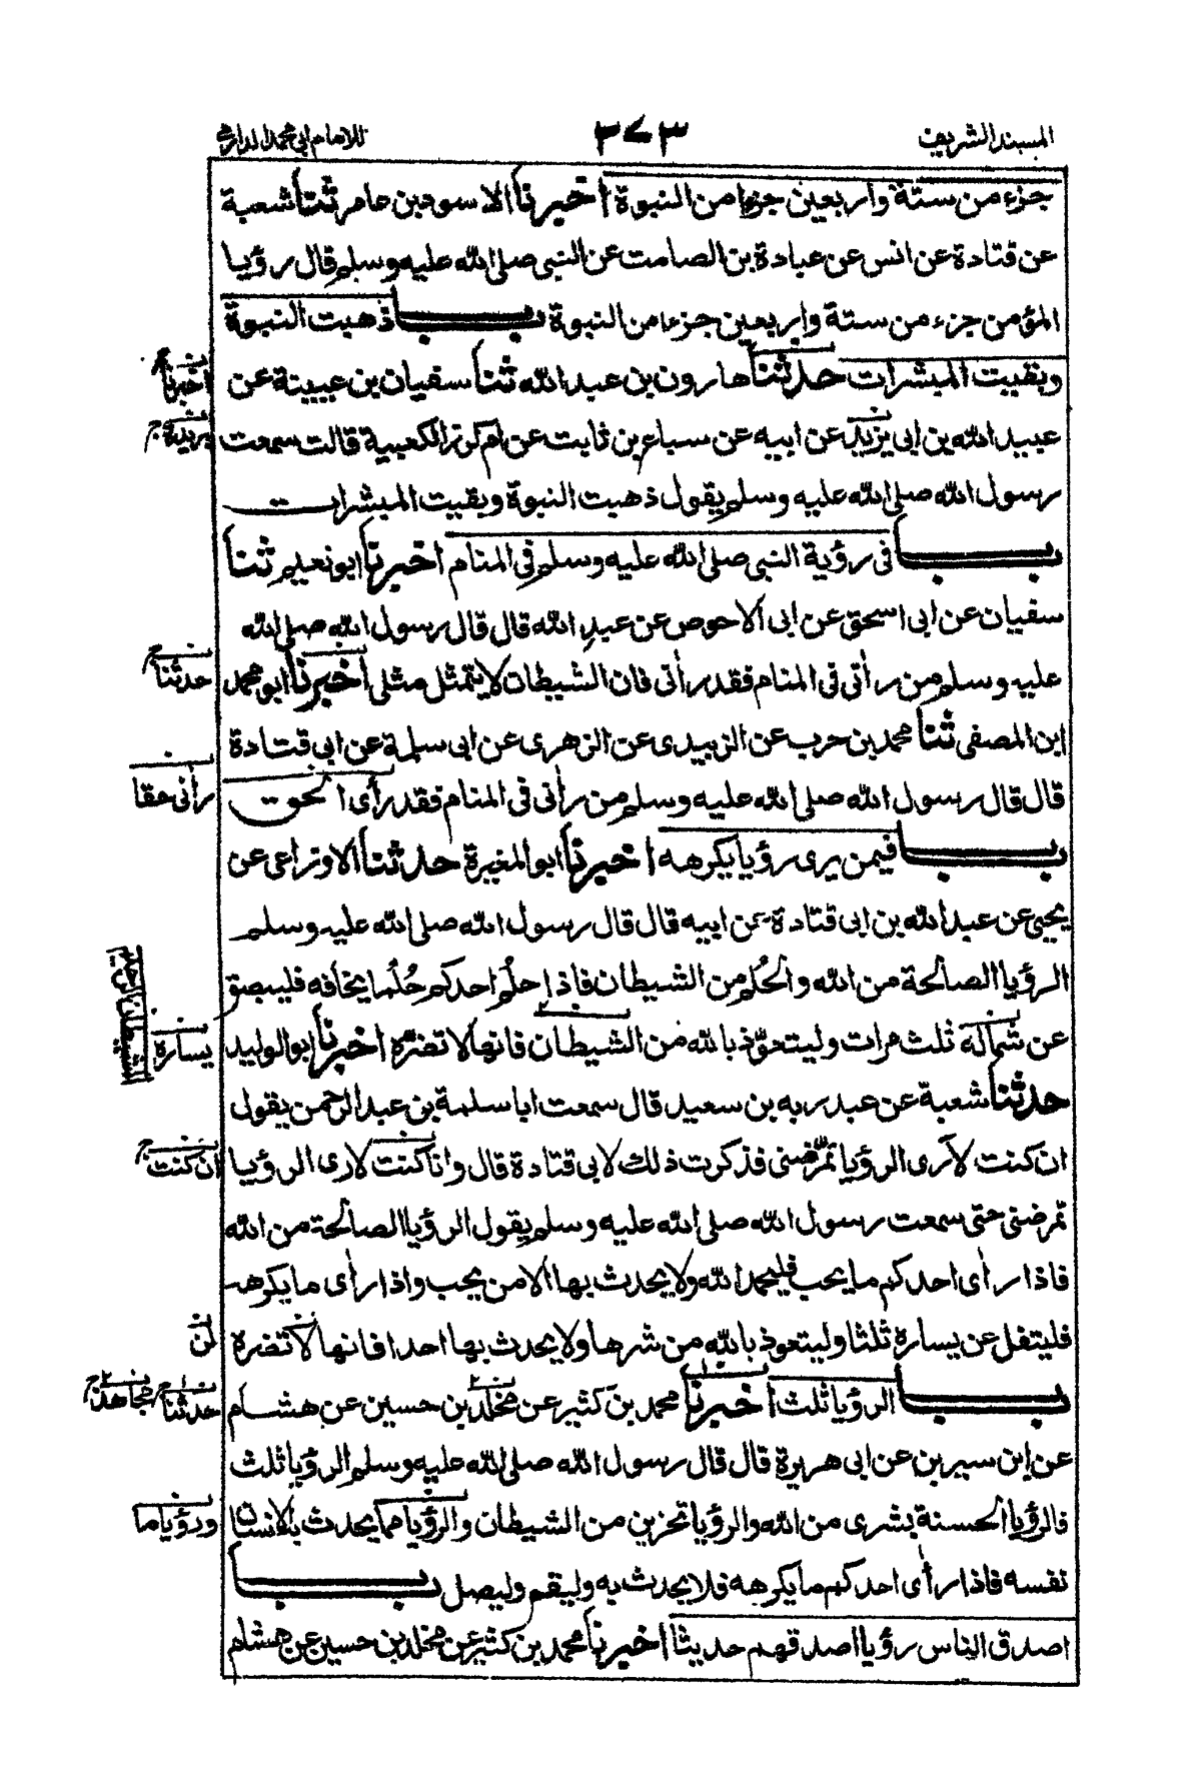 المسند الشريف
٣٧٣
للامام ابي محمد الدارمي
جزء من ستة واربعين جزءا من النبوة اخبرنا الاسود بن عامر ثنا شعبة
عن قتادة عن انس عن عبادة بن الصامت عن النبي صلى الله عليه وسلم قال رؤيا
المؤمن جزء من ستة واربعين جزءا من النبوة باب ذهبت النبوة
وبقيت المبشرات حدثنا هارون بن عبد الله ثنا سفيان بن عيينة عن
اخبرنا
عبيد الله بن ابي يزيد عن ابيه عن سباع بن ثابت عن ام كرز الكعبية قالت سمعت
رسول الله صلى الله عليه وسلم يقول ذهبت النبوة وبقيت المبشرات
باب في رؤية النبي صلى الله عليه وسلم في المنام اخبرنا ابو نعيم ثنا
سفيان عن ابي اسحق عن ابي الاحوص عن عبد الله قال قال رسول الله صلى الله
عليه وسلم من رأني في المنام فقد رأني فان الشيطان لا يتمثل مثلي اخبرنا ابو محمد
حدثنا
ابن المصفى ثنا محمد بن حرب عن الزبيدي عن الزهري عن ابي سلمة عن ابي قتادة
قال قال رسول الله صلى الله عليه وسلم من رأني في المنام فقد رأى الحق
رأني حقا
باب فيمن يرى رؤيا يكرهه اخبرنا ابو المغيرة حدثنا الاوزاعي عن
يحيى عن عبد الله بن ابي قتادة عن ابيه قال قال رسول الله صلى الله عليه وسلم
الرؤيا الصالحة من الله والحُلم من الشيطان فاذا حلم احدكم حُلُما يخافه فليبصق
عن شماله ثلث مرات وليتعوّذ بالله من الشيطان فانها لا تضرّه اخبرنا ابو الوليد
يساره
حدثنا شعبة عن عبد ربه بن سعيد قال سمعت ابا سلمة بن عبد الرحمن يقول
ان كنت لأرى الرؤيا تمرّضني فذكرت ذلك لابي قتادة قال وانا كنت لارى الرؤيا
ان كنت
تمرضني حتى سمعت رسول الله صلى الله عليه وسلم يقول الرؤيا الصالحة من الله
فاذا رأى احدكم ما يحب فليحمد الله ولا يحدث بها الا من يحب واذا رأى ما يكرهه
فليتفل عن يساره ثلثا وليتعوذ بالله من شرها ولا يحدث بها احدا فانها لا تضره
لن
باب الرؤيا ثلث اخبرنا محمد بن كثير عن مخلد بن حسين عن هشام
حدثنا مجاهد
عن ابن سيرين عن ابي هريرة قال قال رسول الله صلى الله عليه وسلم الرؤيا ثلث
فالرؤيا الحسنة بشرى من الله والرؤيا تحزين من الشيطان والرؤيا مما يحدث به الانسان
ورؤيا ما
نفسه فاذا رأى احدكم ما يكرهه فلا يحدث به وليقم وليصل باب
اصدق الناس رؤيا اصدقهم حديثا اخبرنا محمد بن كثير عن مخلد بن حسين عن هشام